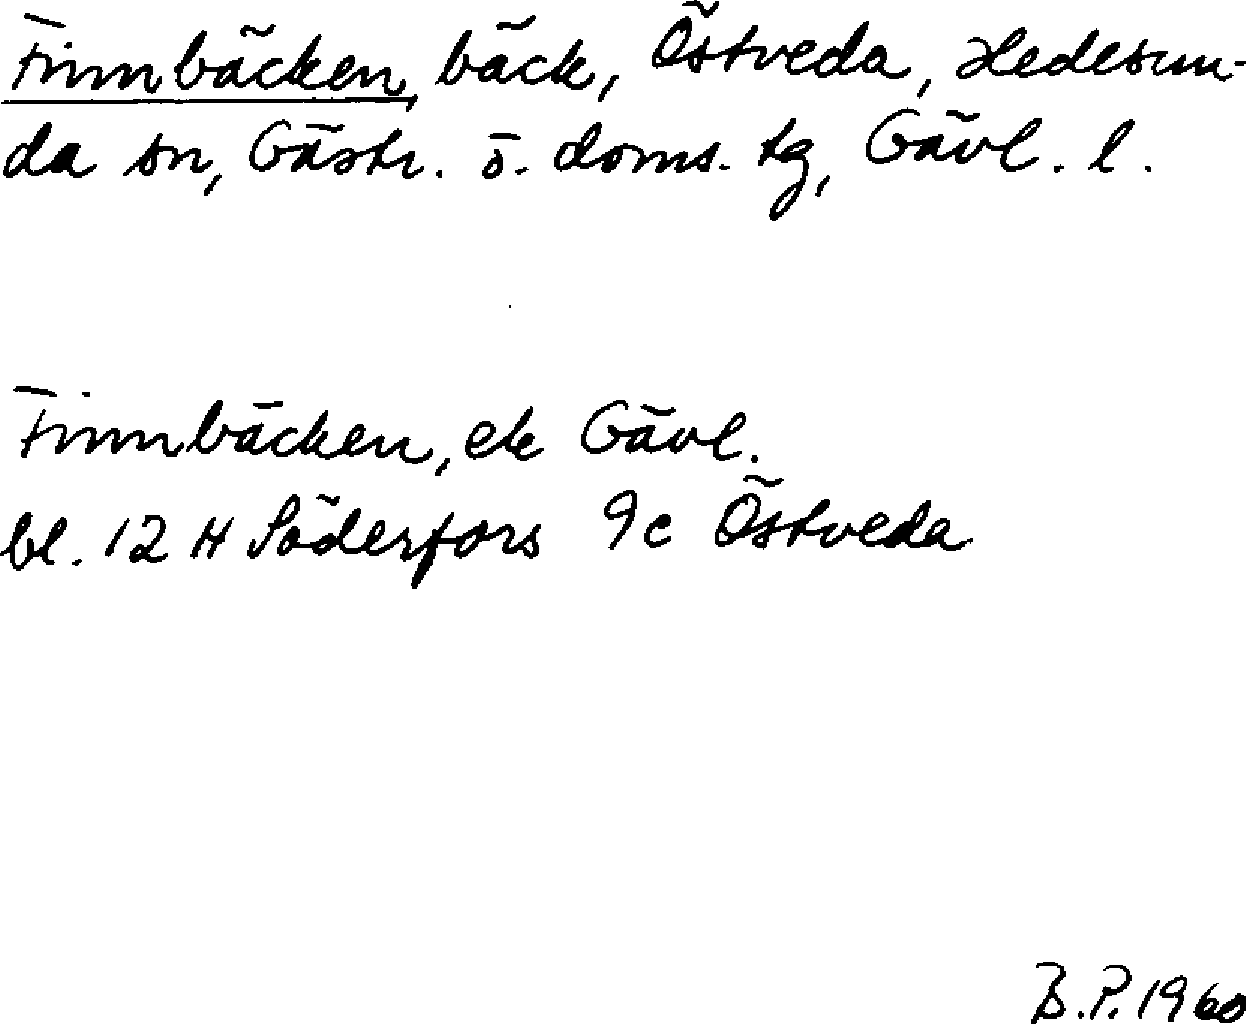 Finnbäcken, bäck, Östveda, Hedesun-
da sn, Gästr. ö. doms. tg, Gävl. l.
Finnbäcken, ek Gävl.
bl. 12 H Söderfors 9c Östveda
B.P. 1960